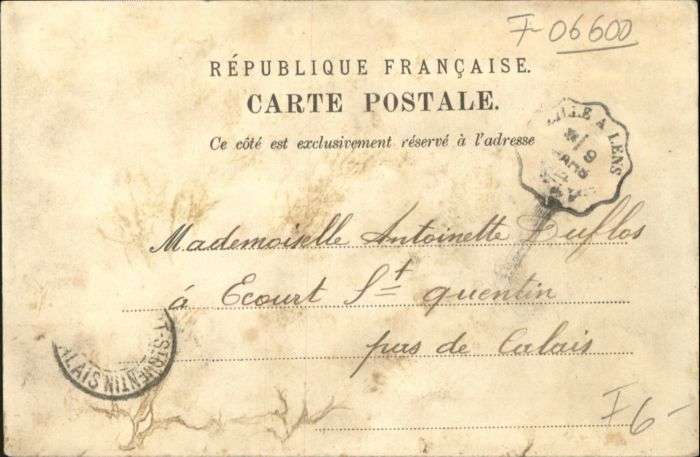 F-06600
RÉPUBLIQUE FRANÇAISE.
CARTE POSTALE.
Ce côté est exclusivement réservé à l'adresse
LILLE A LENS
9
MARS
Mademoiselle Antoinette Duflos
à Ecourt St quentin
pas de Calais
T-St QUENTIN
ALAIS
F6-